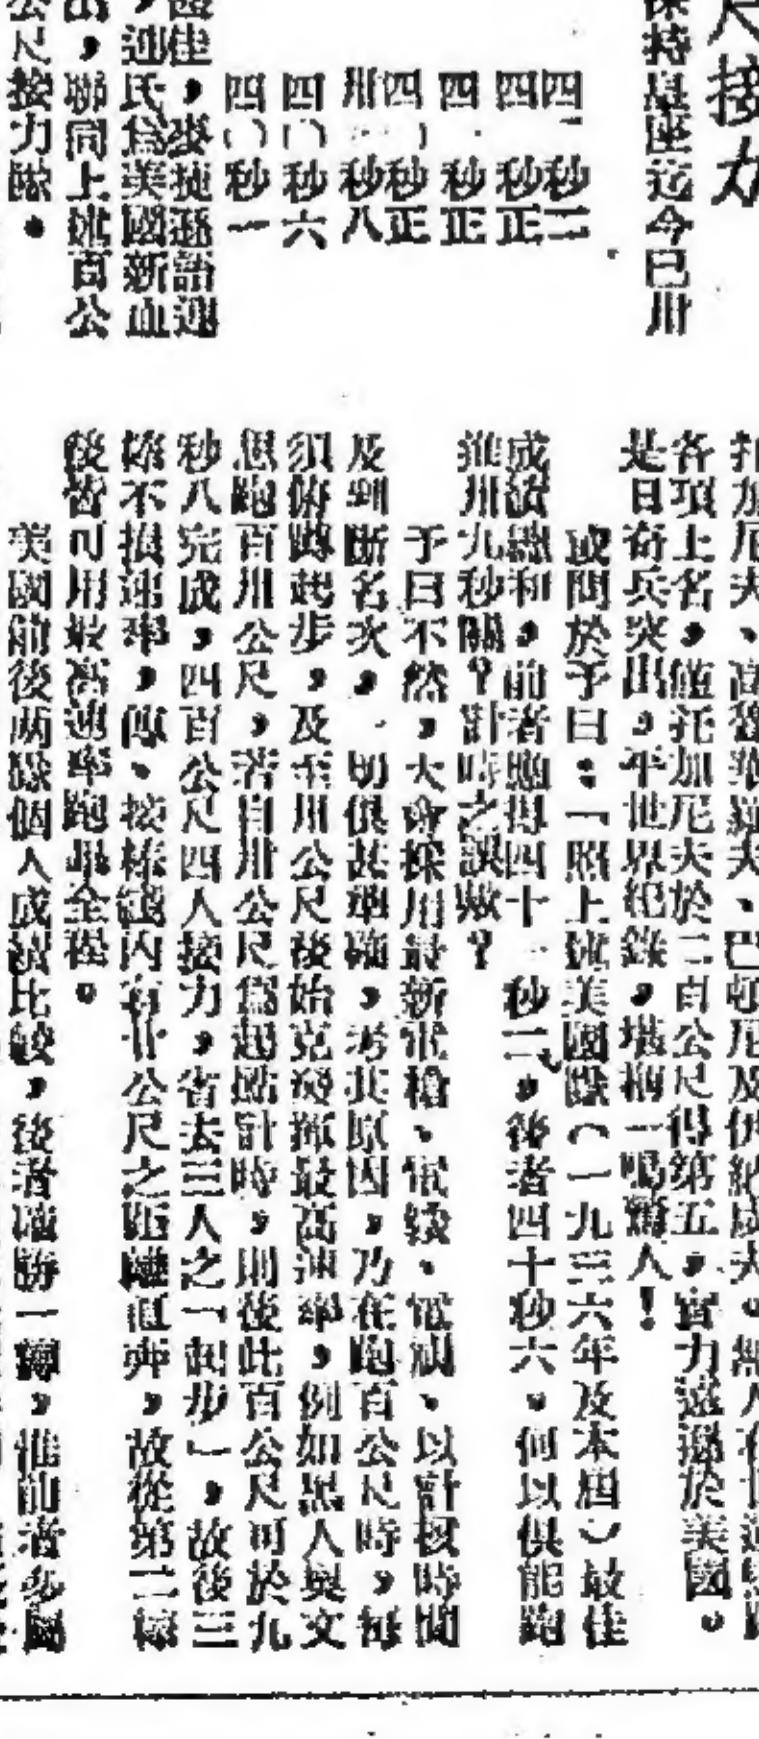 尺接力
保持皇座迄今已卅
四一秒二
四一秒正
四 秒正
四〇秒正
卅 秒八
四〇秒六
四〇秒一
國佳，麥捷遜語迎
，迎氏為美國新血
出，聯同上述百公
公尺接力隊。
扣加尼夫、高
各項上名，僅托加尼夫於二百公尺得第五，實力遠遜於美國。
是日奇兵突出，平世界紀錄，堪稱一鳴驚人！
或問於予曰：「照上述美國隊（一九三六年及本屆）最佳
成績總和，前者應得四十一秒二，後者四十秒六。何以俱能跑
進卅九秒關？計時之誤歟？
予曰不然，大會採用最新電槍、電線、電制、以計核時間
及判斷名次，一切俱甚準確，考其原因，乃在跑百公尺時，每
須俯蹲起步，及至卅公尺後始克發揮最高速率，例如黑人奥文
思跑百卅公尺，若自卅公尺為起點計時，則後此百公尺可於九
秒八完成，四百公尺四人接力，省去三人之「起步」，故後三
棒不損速率，傳、接棒區內有廿公尺之距離直奔，故從第二棒
後皆可用最高速率跑畢全程。
美國前後兩隊個人成績比較，後者確勝一籌，惟前者多屬